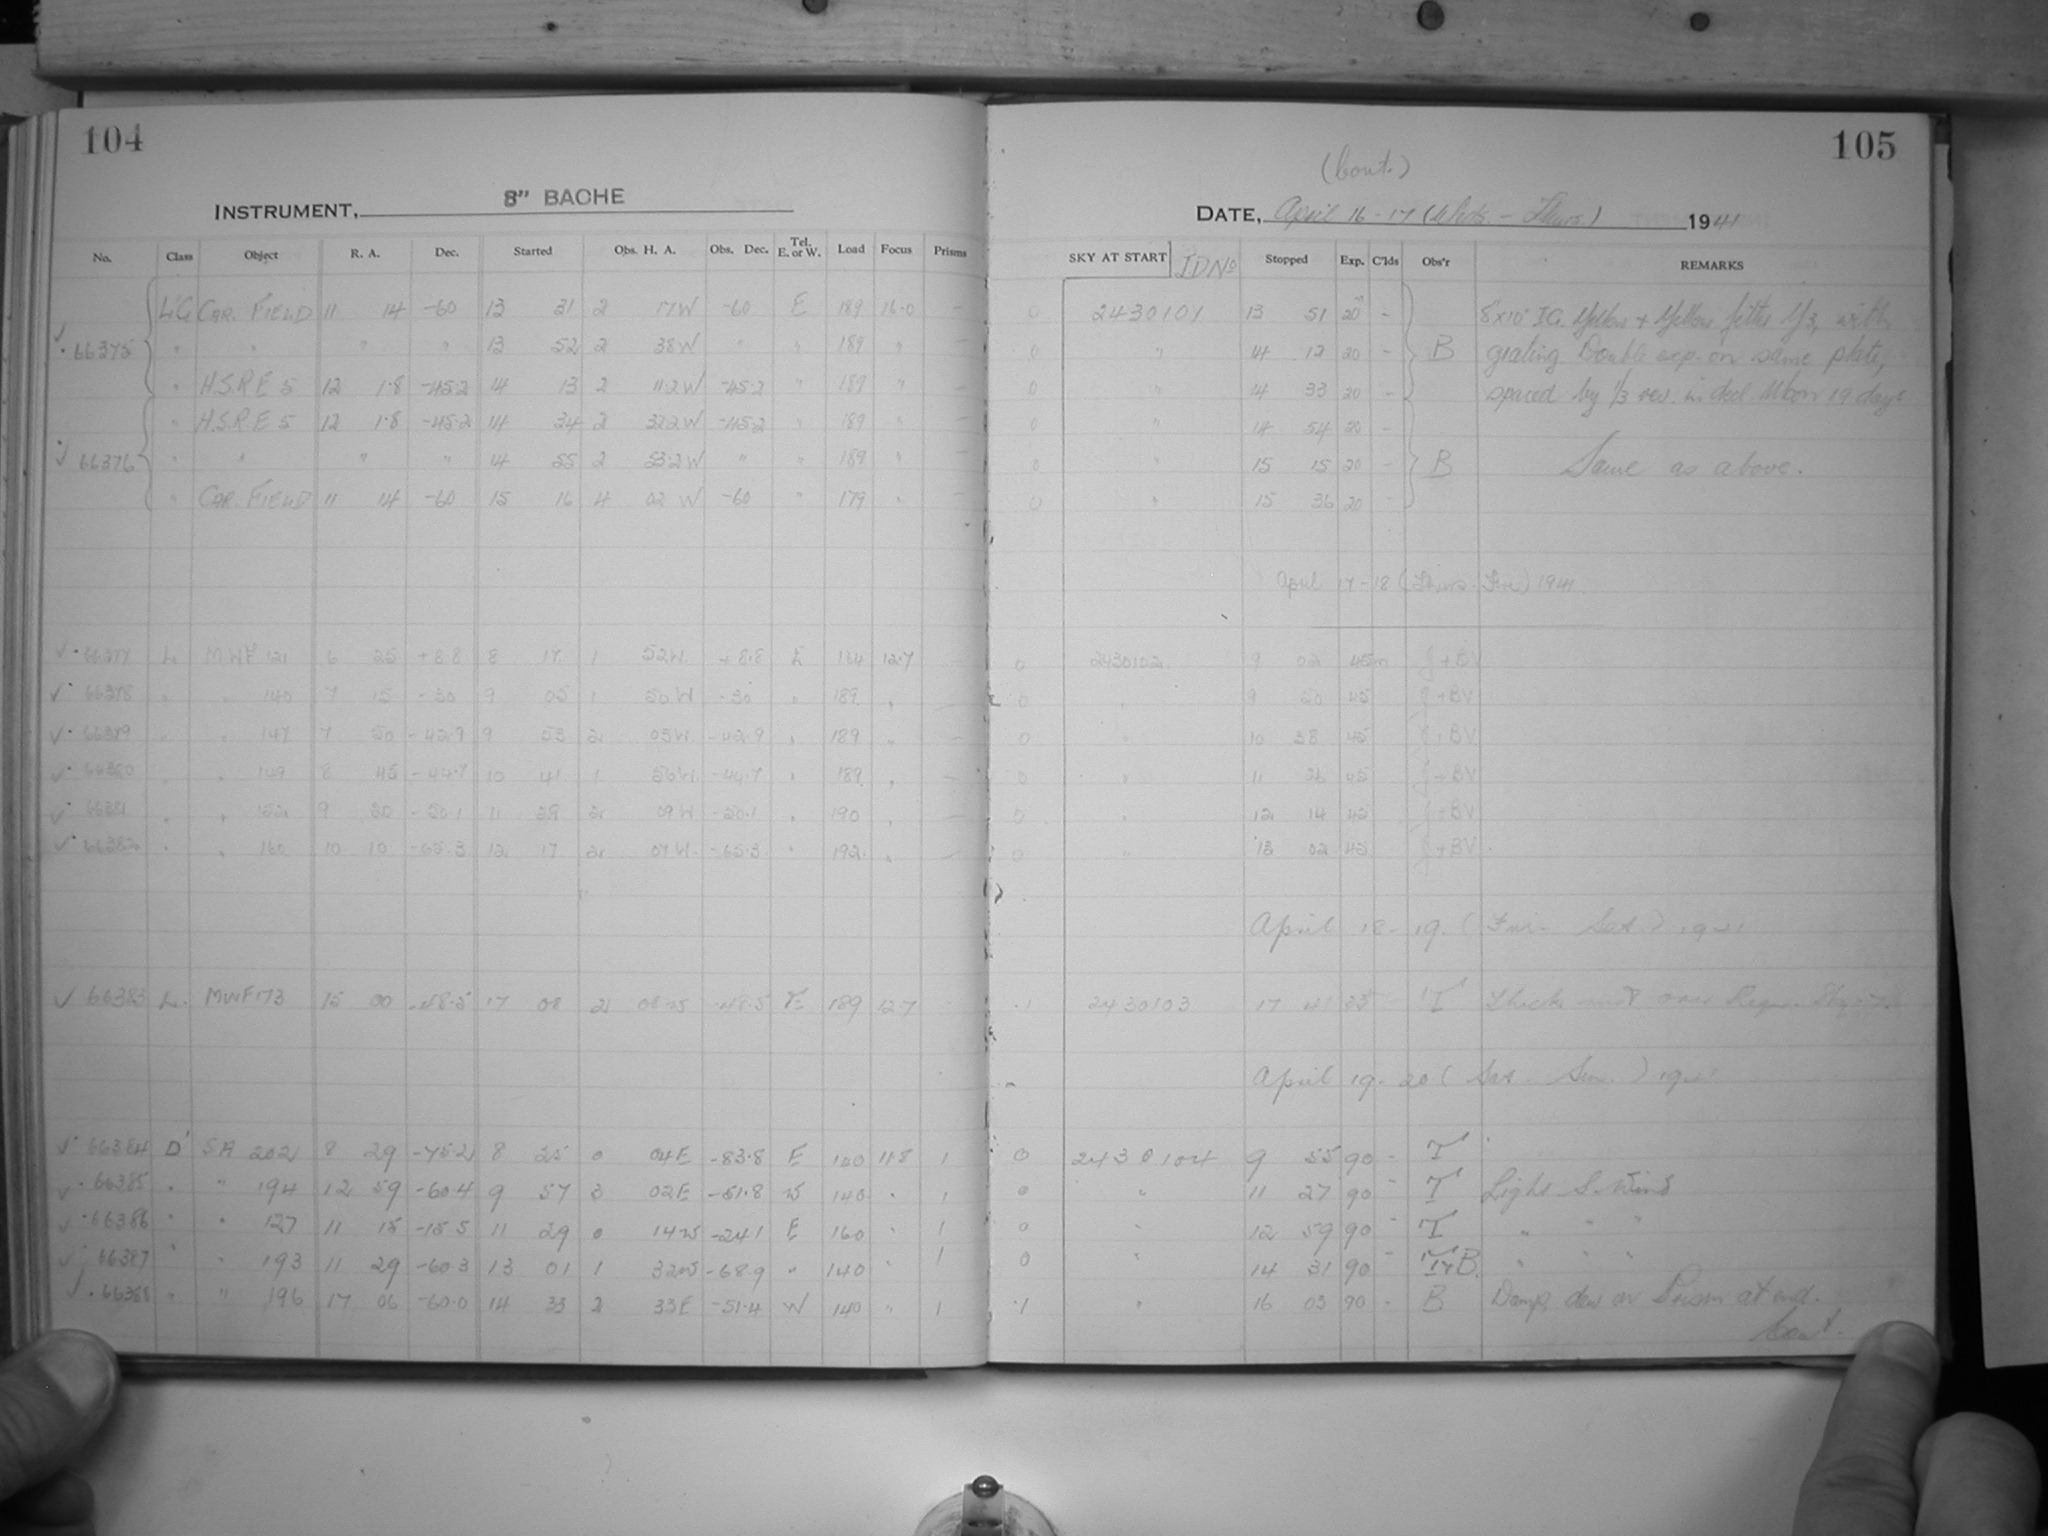 104
105
(Cont.)
INSTRUMENT, 8" BACHE
DATE, April 16-17 (Weds. - Thurs.) 1941
No. Class Object R. A. Dec. Started Obs. H. A. Obs. Dec. Tel. E. or W. Load Focus Prisms SKY AT START JD No Stopped Exp. C'lds Obs'r REMARKS
L'G CAR. FIELD 11 14 -60 13 31 2 17W -60 E 189 16.0 - 0 2430101 13 51 20 - 8x10 IG. Yellow + Yellow filter with
66375 " " " " 13 52 2 38W " " 189 " - 0 " 14 12 20 - B grating Double exp. on same plate,
" H.S.R.E 5 12 1.8 -45.2 14 13 2 11.2W -45.2 " 189 " - 0 " 14 33 20 - spaced by 1/3 rev. in decl. Moon 19 days
" H.S.R.E 5 12 1.8 -45.2 14 34 2 32.2W -45.2 " 189 " - 0 " 14 54 20 -
66376 " " " " 14 55 2 53.2W " " 189 " - 0 " 15 15 20 - B Same as above.
" CAR. FIELD 11 14 -60 15 16 4 02 W -60 " 179 " - 0 " 15 36 20 -
April 17-18 (Thurs - Fri) 1941
66377 L. MWF 121 6 25 +8.8 8 17 1 52W. +8.8 E 164 12.7 - 0 2430102 9 02 45m +BV
66378 " " 140 7 15 -30 9 05 1 50W -30 " 189 " - 0 " 9 50 45 +BV
66379 " " 147 7 50 -42.9 9 53 2 03W. -42.9 " 189 " - 0 " 10 38 45 +BV
66380 " " 149 8 45 -44.7 10 41 1 56W. -44.7 " 189 " - 0 " 11 26 45 +BV
66381 " " 152 9 20 -50.1 11 29 2 09W -50.1 " 190 " - 0 " 12 14 45 +BV
66382 " " 160 10 10 -65.3 12 17 2 07W. -65.3 " 192 " - 0 " 13 02 45 +BV
April 18-19. (Fri - Sat.) 1941
66383 L. MWF173 15 00 -48.5 17 08 2 08W -48.5 E 189 12.7 .1 2430103 17 41 33 - T Thick mist over
April 19-20 (Sat - Sun.) 1941
66384 D' SA 202 8 29 -75.2 8 25 0 04E -83.8 E 140 11.8 1 0 2430104 9 55 90 - T
66385 " " 194 12 59 -60.4 9 57 3 02E -51.8 W 140 " 1 0 " 11 27 90 - T Light S. Wind
66386 " " 127 11 15 -15.5 11 29 0 14W -24.1 E 160 " 1 0 " 12 59 90 - T " " "
66387 " " 193 11 29 -60.3 13 01 1 32W -68.9 " 140 " 1 0 " 14 31 90 - T+B. " " "
66388 " " 196 17 06 -60.0 14 33 2 33E -51.4 W 140 " 1 .1 " 16 03 90 - B Damp, dew on Prism at end.
Cont.